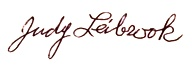 Judy Leibrook